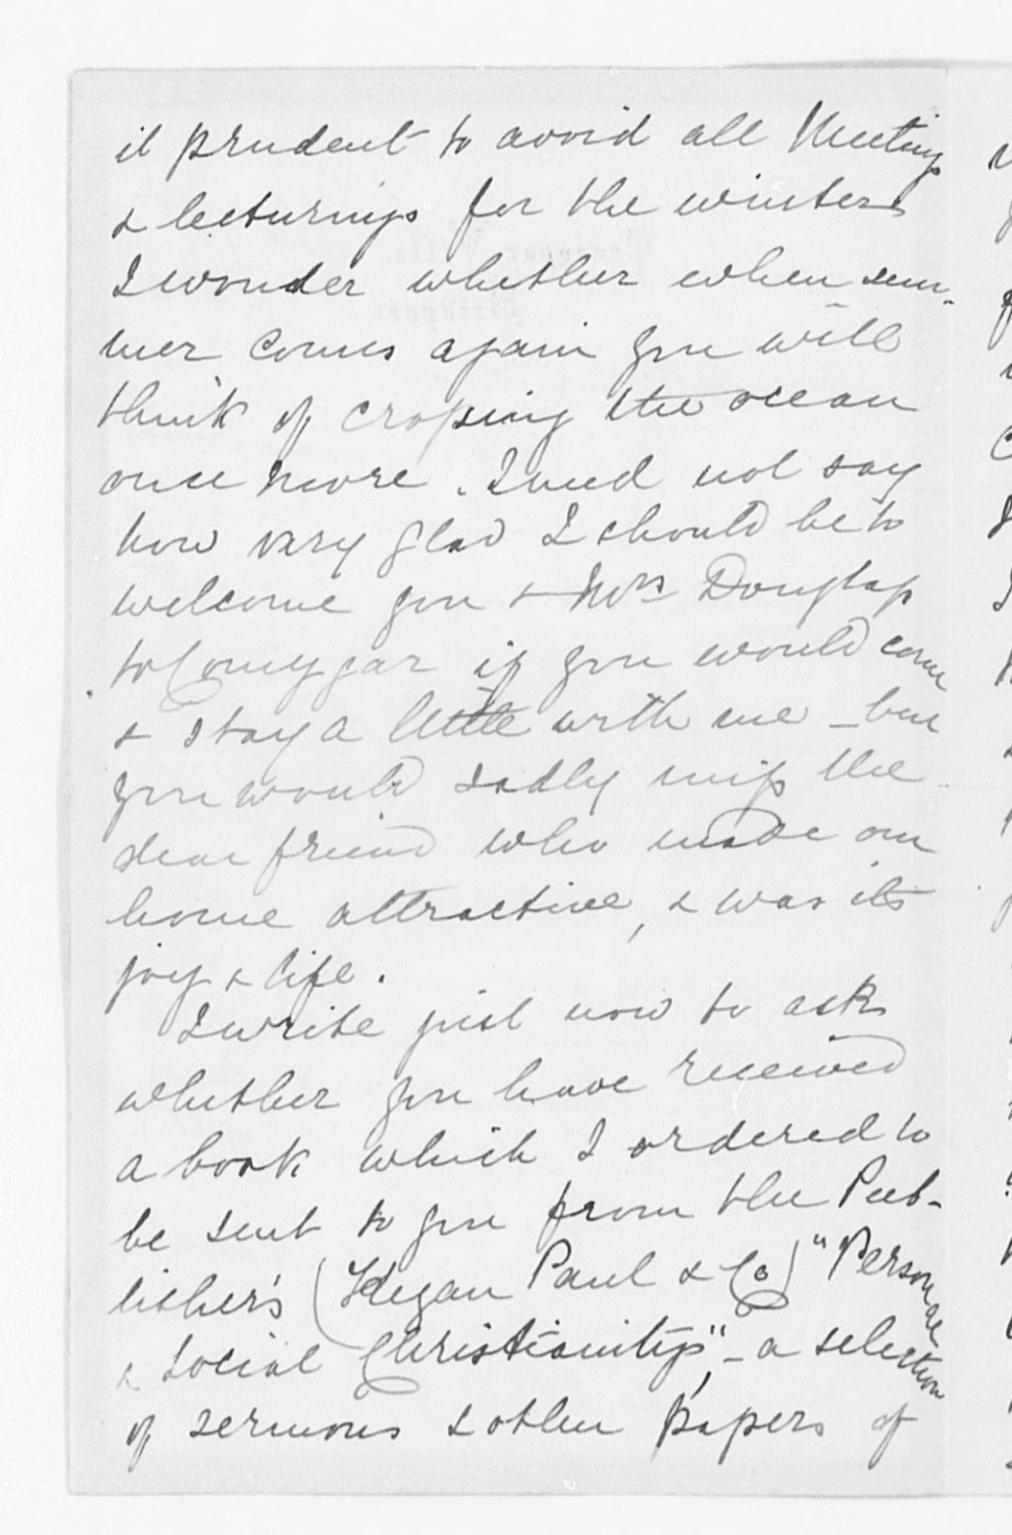 it prudent to avoid all Meetings
& lecturings for the winter.
I wonder whether when sum-
mer comes again you will
think of crossing the ocean
once more. I need not say
how very glad I should be to
welcome you & Mrs Douglass
to Coneygar if you would come
& stay a little with me - but
you would sadly miss the
dear friend who made our
home attractive, & was its
joy & life.
I write just now to ask
whether you have received
a book which I ordered to
be sent to you from the Pub-
lisher's (Kegan Paul & Co) "Personal
& Social Christianity", - a selection
of sermons & other papers of